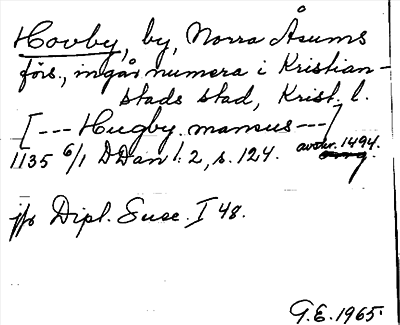 Hovby, by, Norra Åsums
förs., ingår numera i Kristian-
stads stad, Krist. l.
[--- Hugby. mansus ---]
1135 6/1 DDan 1:2, s. 124. avskr. 1494.
jfr Dipl. Suec. I 48.
G.E. 1965